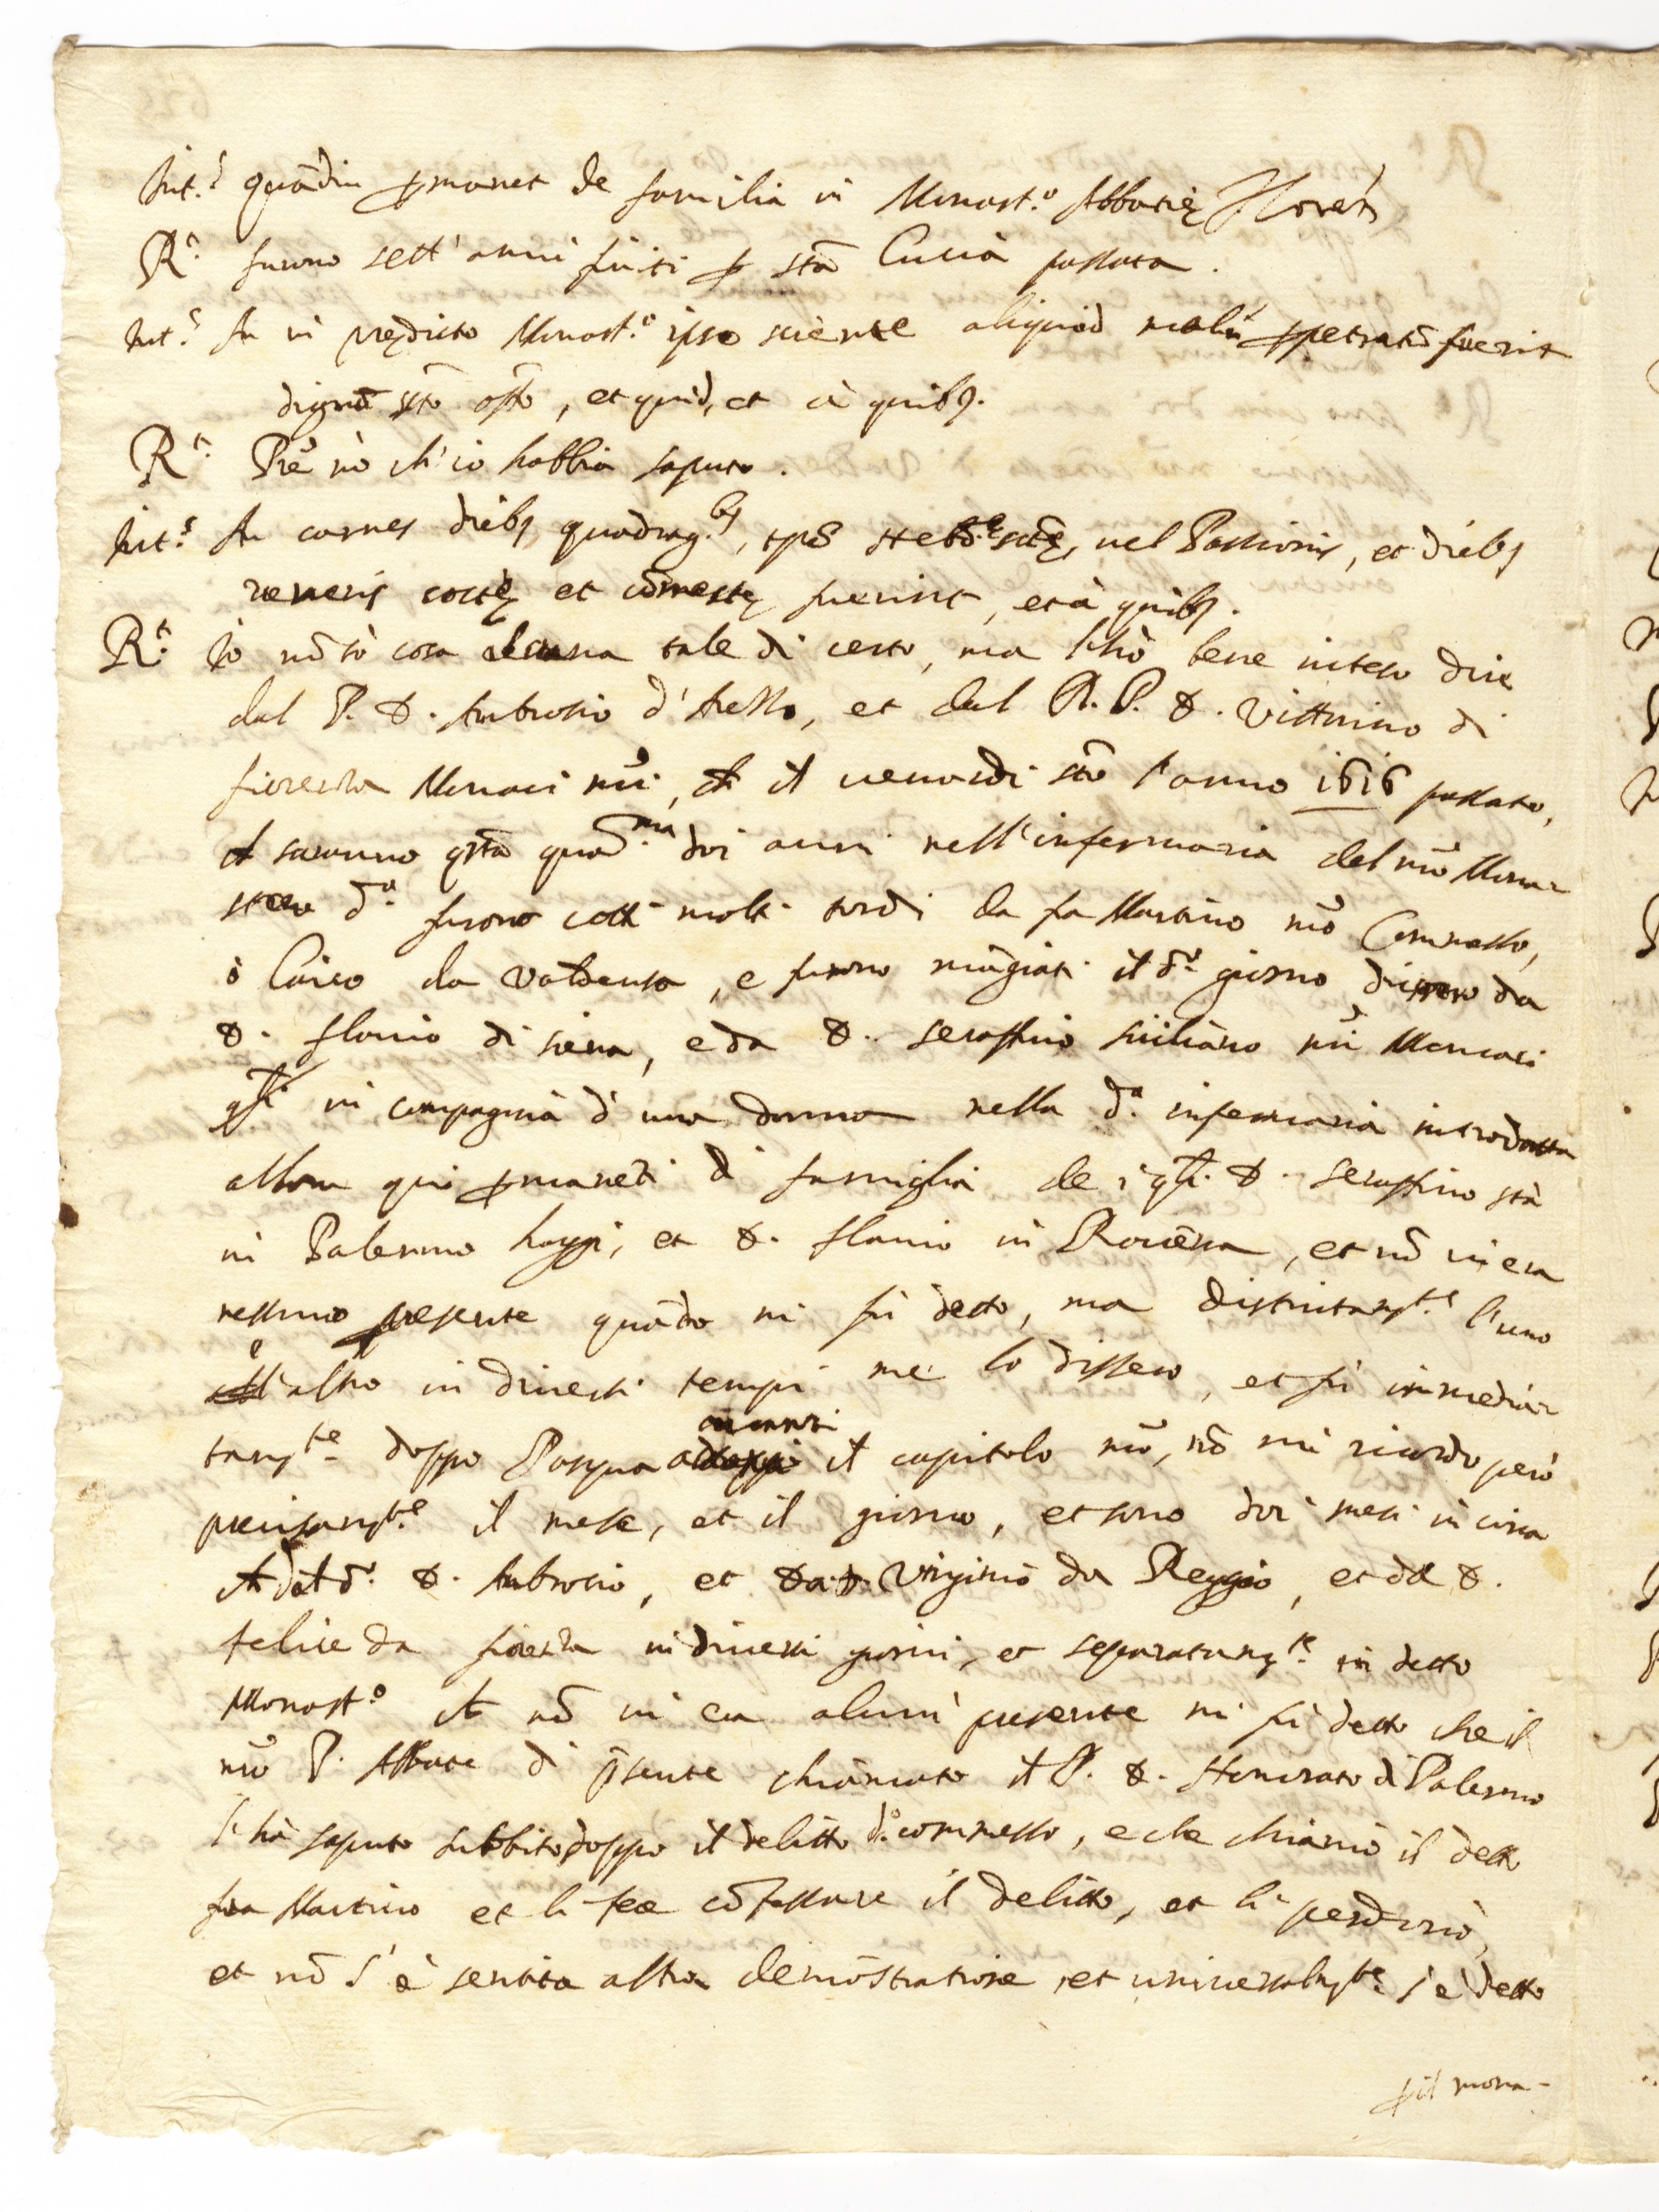 Int.s quādiu ꝑmanet de familia in Monast.o Abbatię Florēt.
R.t furno sett'anni finiti ꝑ stā Lucia passata.
Int.s An in prędicto Monast.o ipso sciente aliquod malū ꝑpetratū fuerit
dignū sto offo, et quid, et à quibꝯ.
R.t Prē nò ch'io habbia saputo.
Int.s An carnes diebꝯ quadrag.bꝯ, tpē hebd.e sctę, vel Passionis, et diebꝯ
veneris coctę et cōmestę fuerint, et à quibꝯ.
R.t Io nō sò cosa alcuna tale di certo, ma l'hò bene inteso dire
dal P. D. Ambrosio d'Aello, et dal R. P. D. Vittorino di
fiorenza Monaci nr̄i, ch il venerdi sto l'anno 1616 passato,
ch saranno qsta quad.ma doi anni nell'infermaria del nr̄o Mona=
stero d.o furono cotti molti tordi da fra Martino nr̄o Commesso,
ò laico da Valdensa, e furono māgiati il d.o giorno da
D. flavio di siena, e da D. seraffino siciliano nr̄i Monaci
qli in compagnia d'una donna nella d.a infermaria introdotta
allora qui ꝑmanēti di famiglia de i qli. D. seraffino stà
in Palermo hoggi, et D. flavio in Ravēna, et nō vi era
nessuno presente quādo mi fù detto, ma distintamte. l'uno
e l'altro in diversi tempi me lo dissero, et fù immedia=
tamte. doppo Pasqua avanti il capitolo nr̄o, nō mi ricordo però
precisamte. il mese, et il giorno, et sono doi mesi in circa
ch dal d.o D. Ambrosio, et da D. Virginio da Reggio, et da D.
felice da fiorenza in diversi giorni, et separatamte. in detto
Monast.o ch nō vi era alcun presente mi fù detto che il
nr̄o P. Abbate di p̄sente chiamato il P. D. Honorato di Palermo
l'hà saputo subbito doppo il delitto d.o commesso, e che chiamò il detto
fra Martino et li fece cōfessare il delitto, et li perdonò,
et nō s'è sentita altra demōstratione, et universalmte. s'è detto
ꝑ il mona-